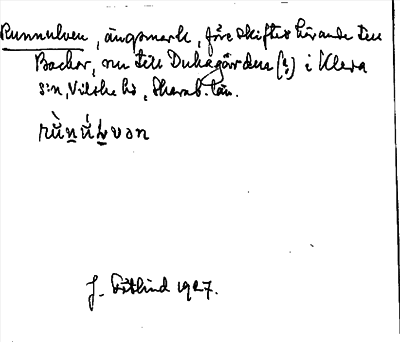 Runnulven, ängsmark, före skiftet hörande till
Backor, nu till Dukagården (?) i Kleva
s:n, Vilske hd, Skarab. län.
rùnúlvən
J. Götlind 1927.